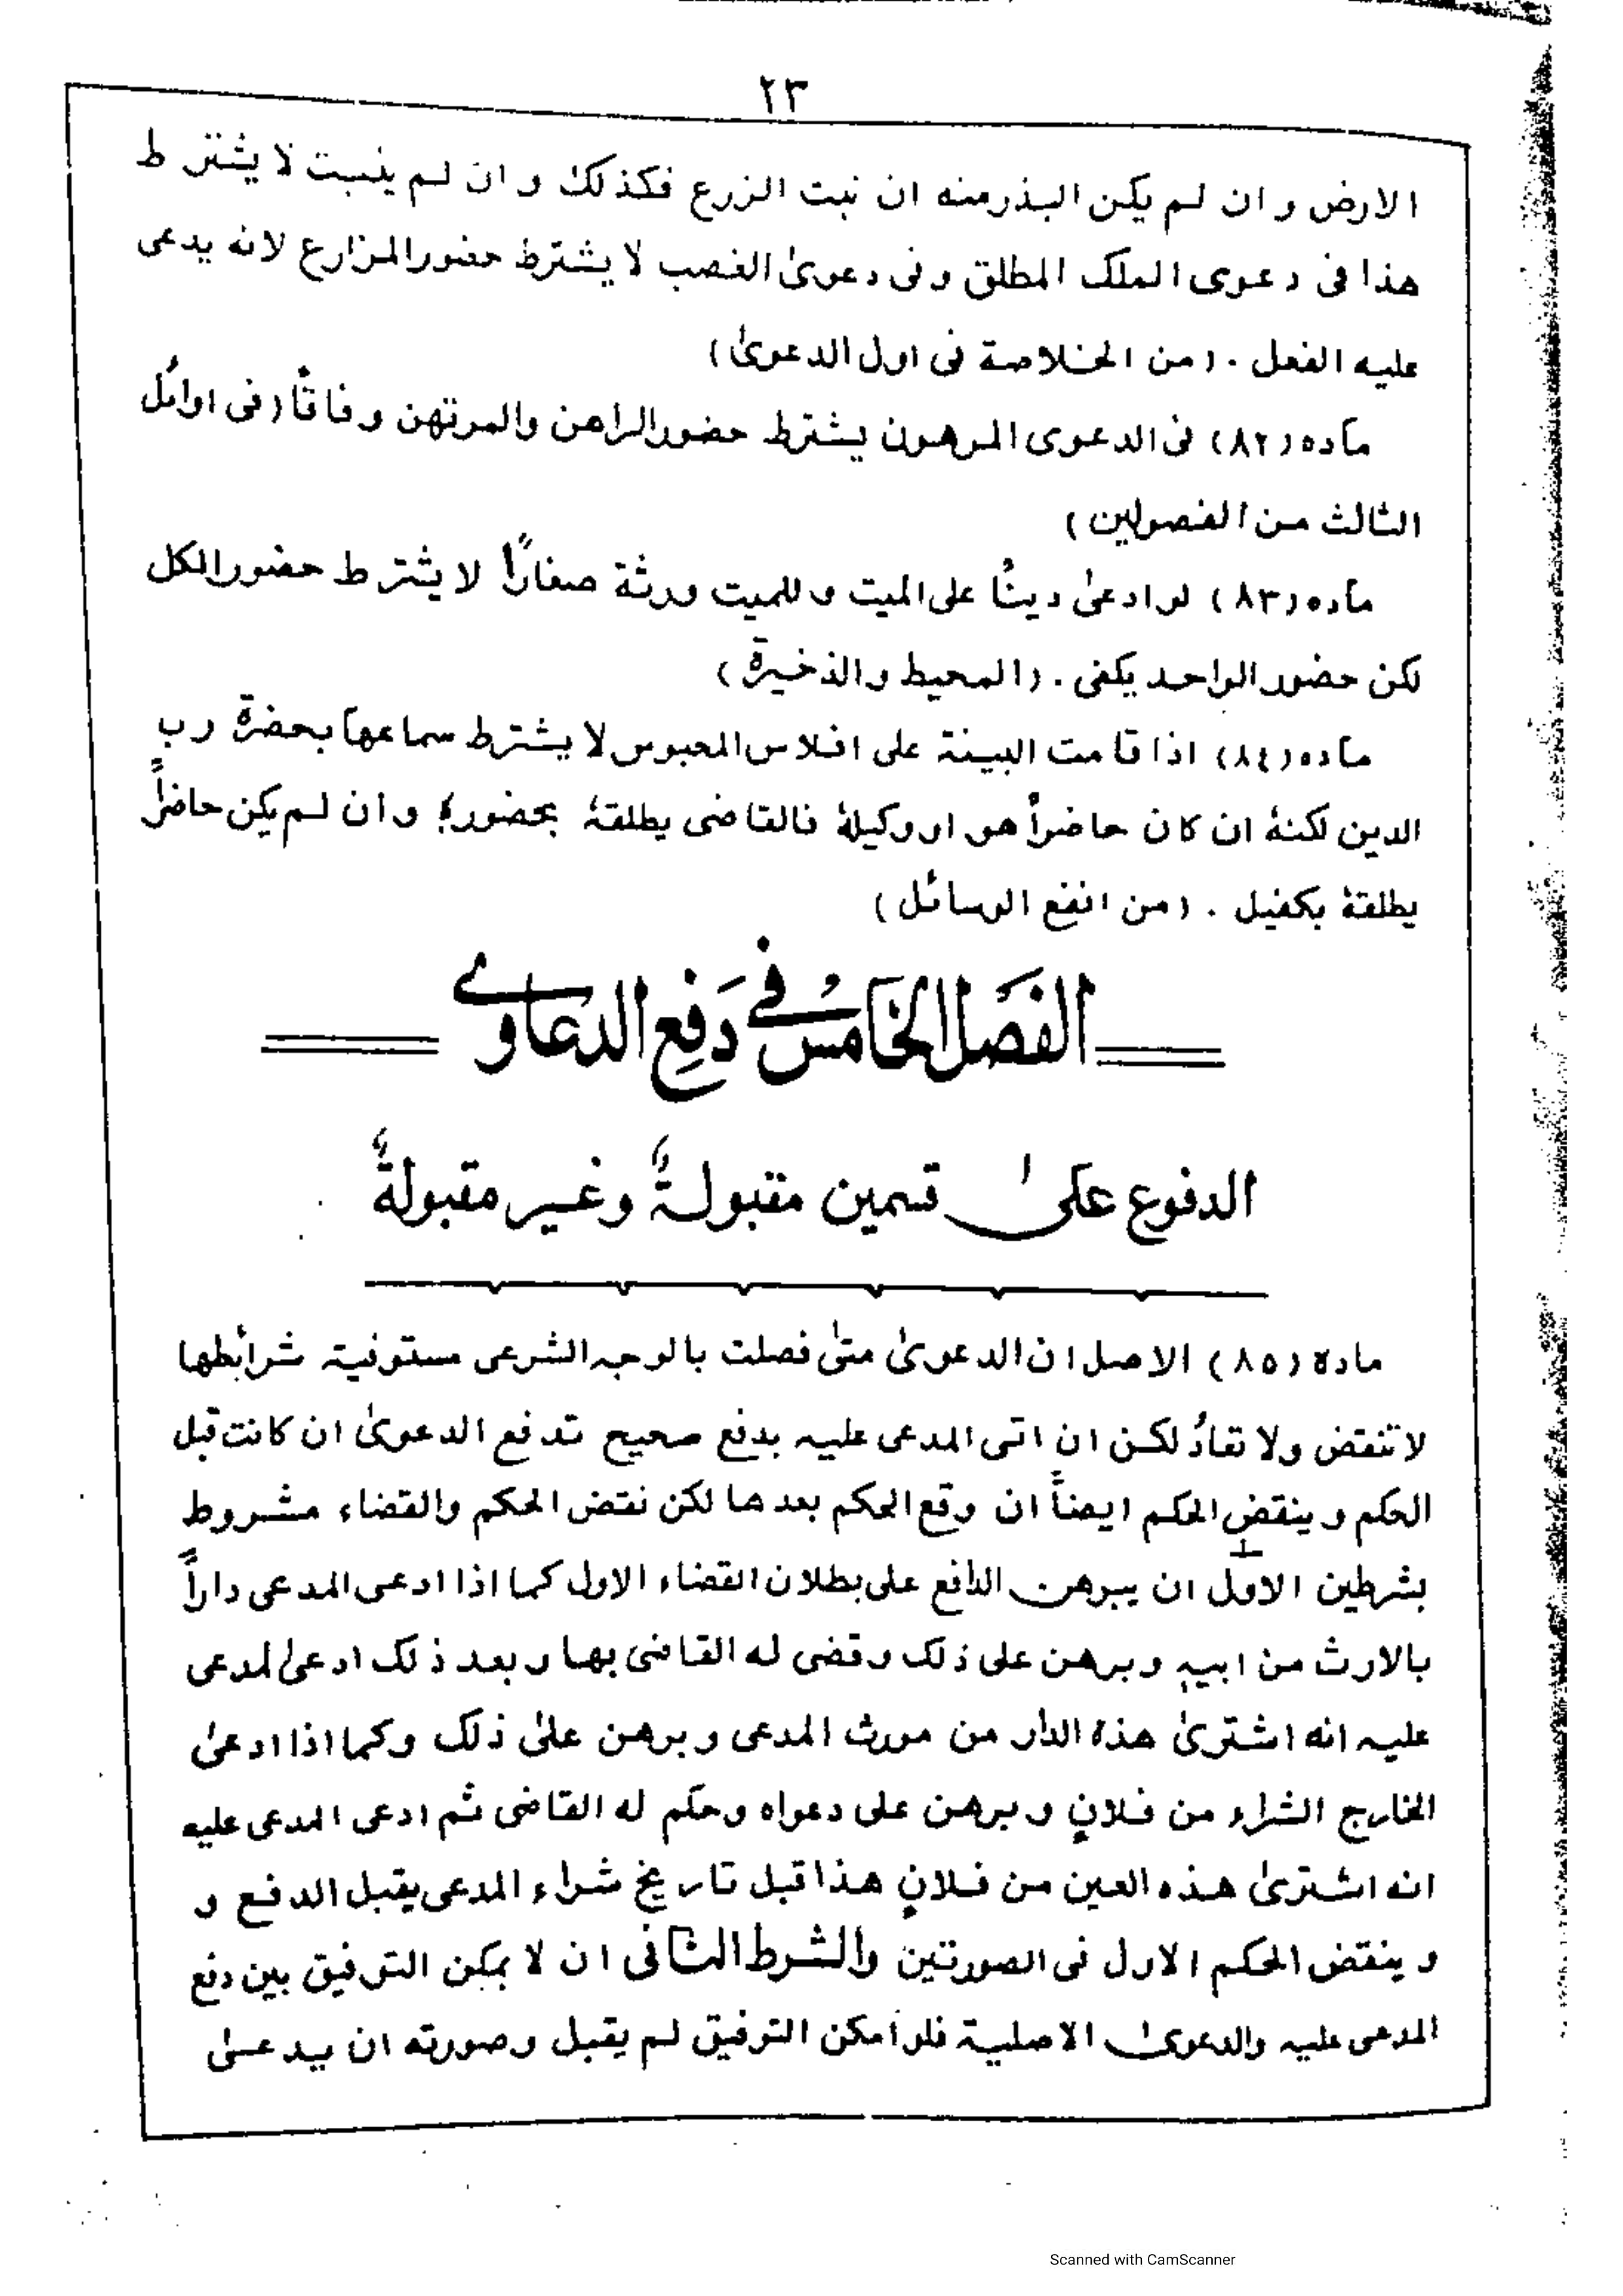 ٢٣
الارض و ان لم يكن البذر منه ان نبت الزرع فكذلك و ان لم ينبت لا يشترط
هذا فى دعوى الملك المطلق و فى دعوىٰ الغصب لا يشترط حضور المزارع لانه يدعى
عليه الفعل . (من الخلاصة فى اول الدعوىٰ)
ماده (٨٢) فى الدعوى المرهون يشترط حضور الراهن والمرتهن وفاقاً (فى اوائل
الثالث من الفصولين)
ماده (٨٣) لو ادعىٰ ديناً على الميت و للميت ورثة صغاراً لا يشترط حضور الكل
لكن حضور الواحد يكفى . (المحيط والذخيرة)
ماده (٨٤) اذا قامت البينة على افلاس المحبوس لا يشترط سماعها بحضرة رب
الدين لكنهٔ ان كان حاضراً هو او وكيلهٔ فالقاضى يطلقهٔ بحضورهٖ و ان لم يكن حاضراً
يطلقهٔ بكفيل . (من انفع الوسائل)
الفَصَل الخَامسُ في دَفع الدعَاوے
الدفوع علىٰ قسمين مقبولةٌ وغير مقبولةٌ
مادة (٨٥) الاصل ان الدعوىٰ متىٰ فصلت بالوجه الشرعى مستوفية شرائطها
لا تنقض ولا تعادُ لكن ان اتى المدعى عليه بدفع صحيح تدفع الدعوىٰ ان كانت قبل
الحكم و ينقض الحكم ايضاً ان وقع الحكم بعدها لكن نقض الحكم والقضاء مشروط
بشرطين الاول ان يبرهن الدافع على بطلان القضاء الاول كما اذا ادعى المدعى داراً
بالارث من ابيهٖ و برهن على ذلك وقضى له القاضى بها و بعد ذلك ادعىٰ المدعى
عليه انه اشترىٰ هذه الدار من مورث المدعى و برهن علىٰ ذلك وكما اذا ادعىٰ
الخارج الشراء من فلانٍ و برهن على دعواه وحكم له القاضى ثم ادعى المدعى عليه
انه اشترىٰ هذه العين من فلانٍ هذا قبل تاريخ شراء المدعى يقبل الدفع و
و ينقض الحكم الاول فى الصورتين والشرط الثانى ان لا يمكن التوفيق بين دفع
المدعى عليه والدعوىٰ الاصلية فلو امكن التوفيق لم يقبل وصورته ان يدعىٰ
Scanned with CamScanner